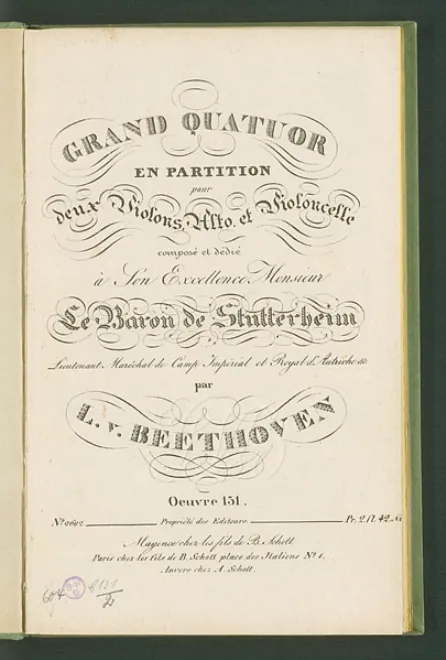 GRAND QUATUOR
EN PARTITION
pour
deux Violons, Alto, et Violoncelle
composé et dédié
à Son Excellence Monsieur
Le Baron de Stutterheim
Lieutenant Maréchal de Camp Impérial et Royal d'Autriche &c
par
L. v. BEETHOVEN
Oeuvre 131.
No. 2692. Propriété des Editeurs. Pr. 2 fl. 42
Mayence chez les fils de B. Schott.
Paris chez les fils de B. Schott, place des Italiens No. 1.
Anvers chez A. Schott.